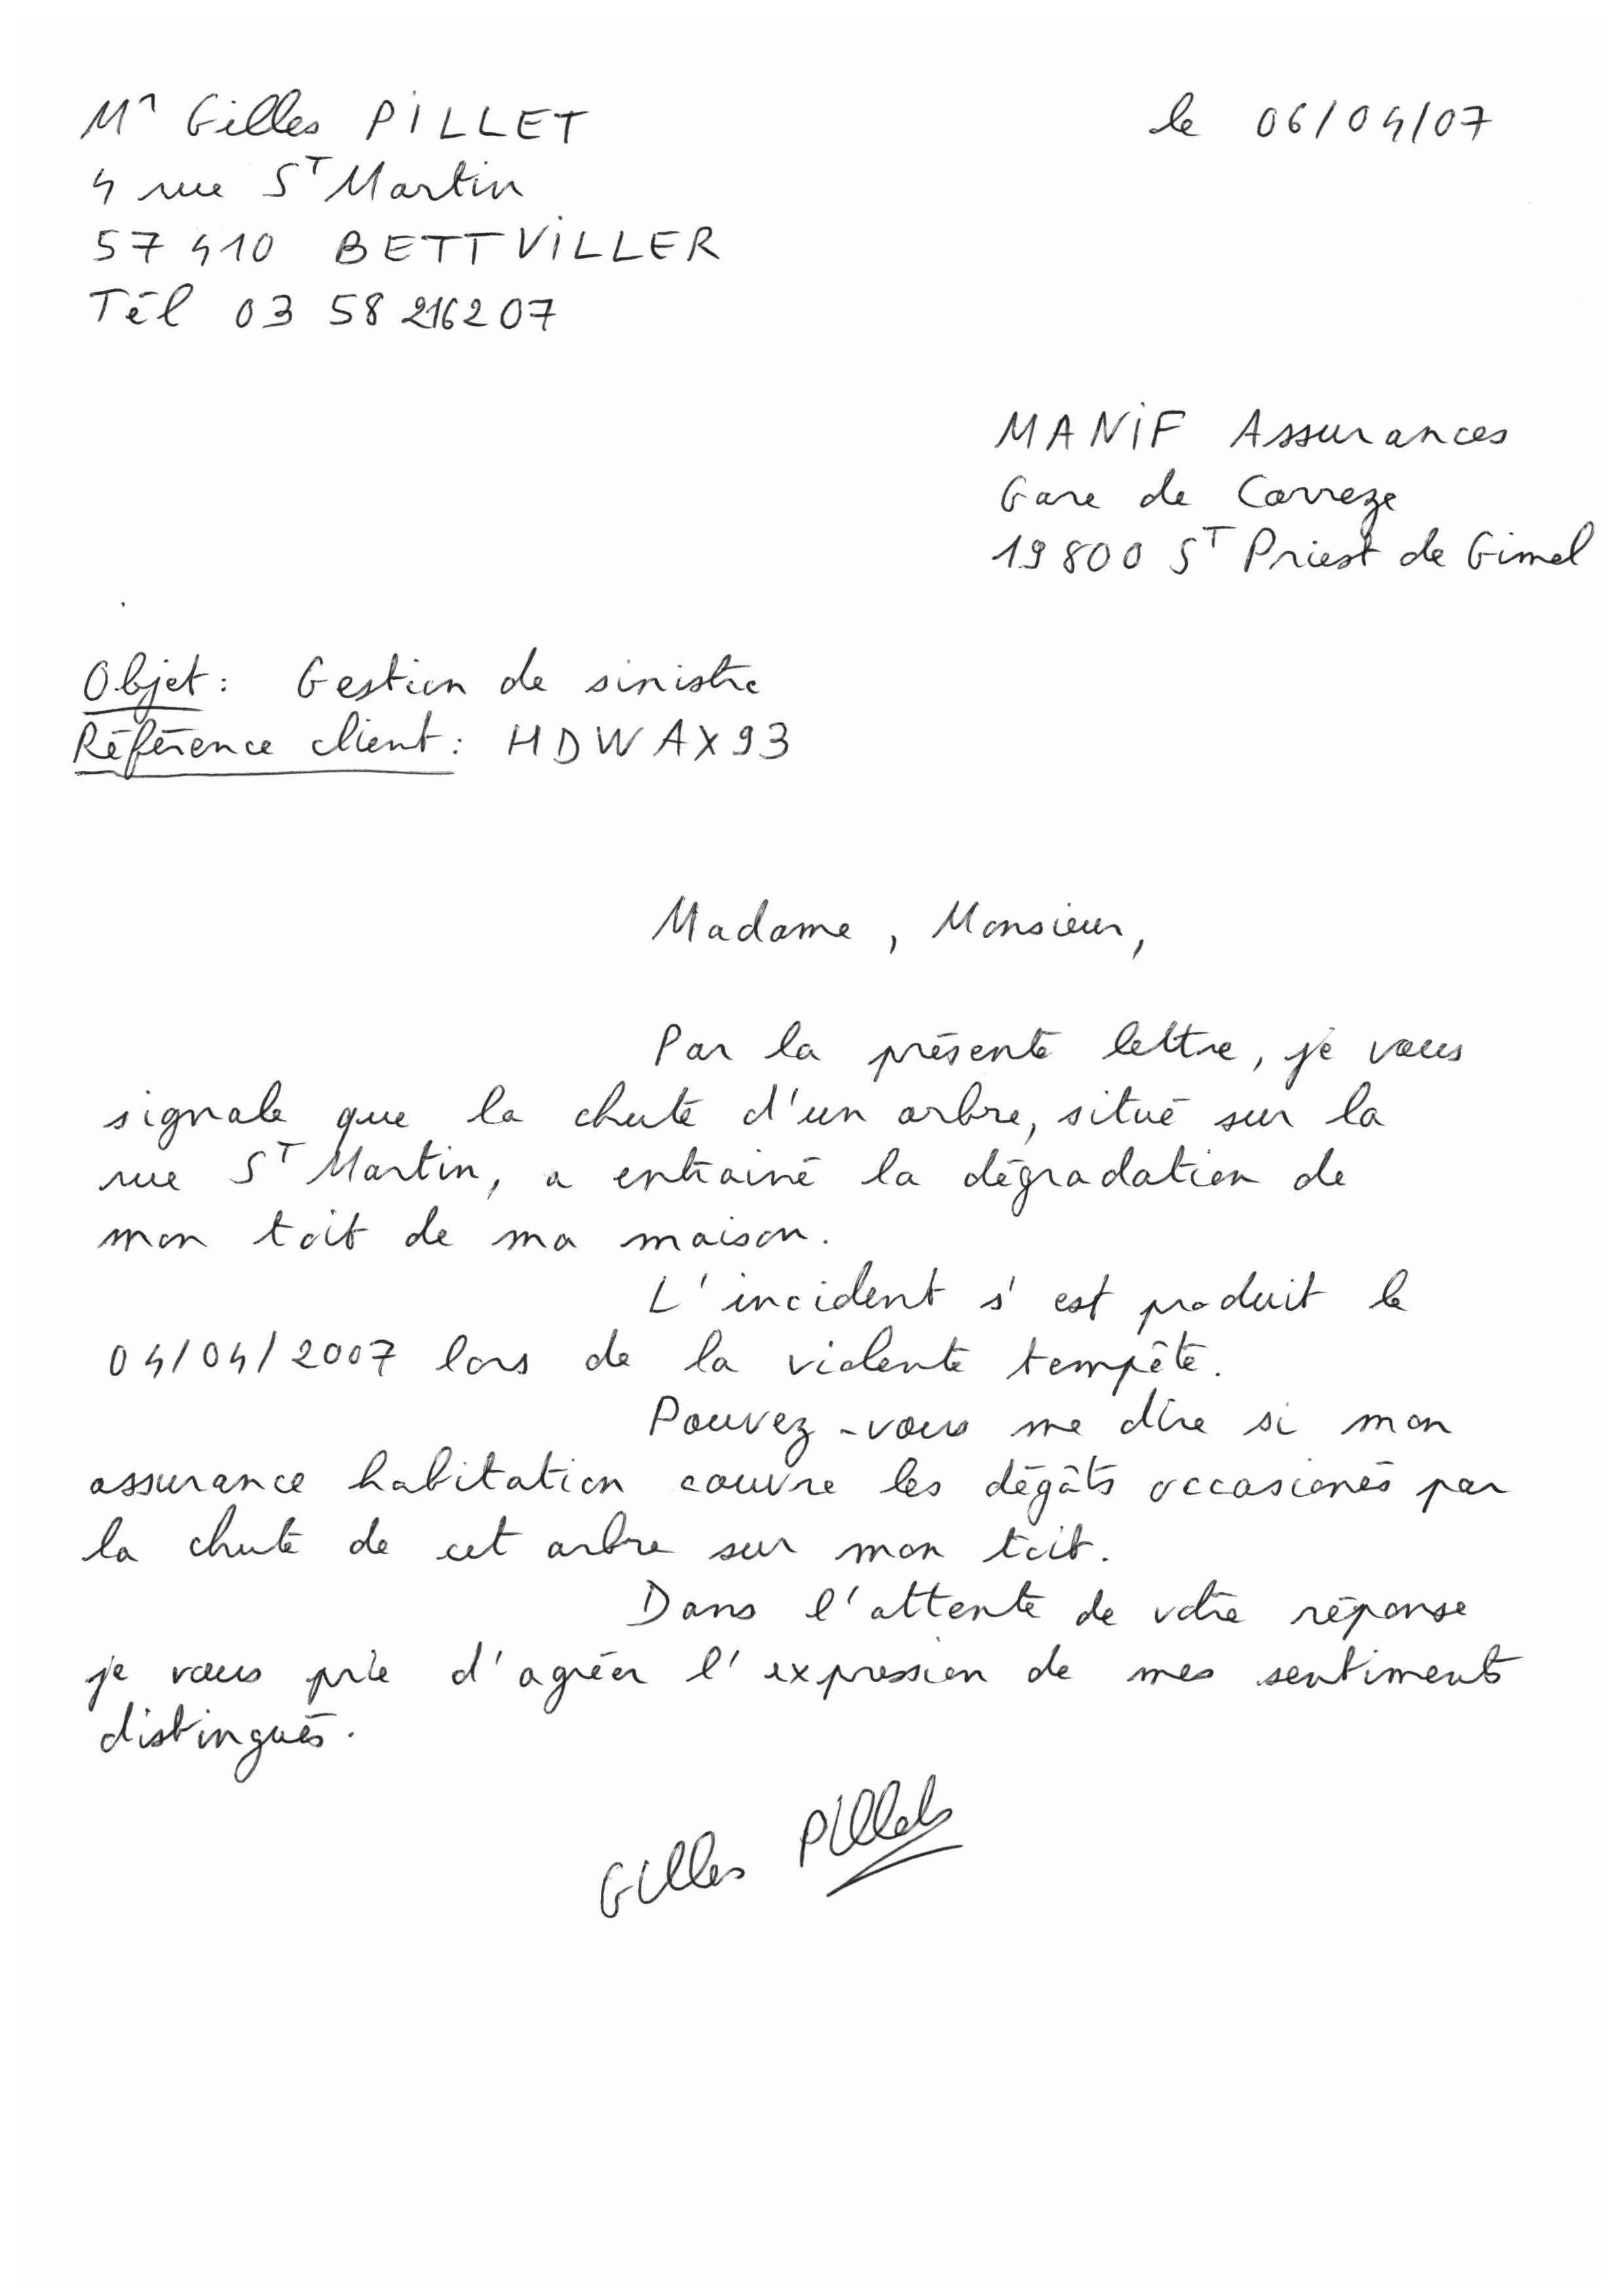 Mr Gilles PILLET
le 06/04/07
4 rue ST Martin
57410 BETTVILLER
Tél 03 58 216207
MANIF Assurances
Gare de Correze
19800 ST Priest de Gimel
Objet : Gestion de sinistre
Référence client : HDWAX93
Madame, Monsieur,
Par la présente lettre, je vous
signale que la chute d'un arbre, situé sur la
rue ST Martin, a entrainé la dégradation de
mon toit de ma maison.
L'incident s'est produit le
04/04/2007 lors de la violente tempête.
Pouvez-vous me dire si mon
assurance habitation couvre les dégâts occasionés par
la chute de cet arbre sur mon toit.
Dans l'attente de votre réponse
je vous prie d'agréer l'expression de mes sentiments
distingués.
Gilles Pillet